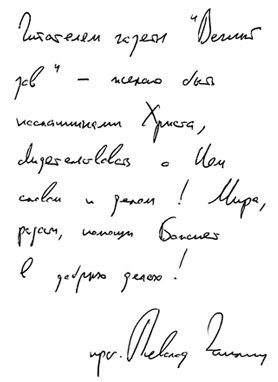 Читателям газеты "Вечный
зов" – желаю быть
посланниками Христа,
свидетельствовать о Нем
словом и делом! Мира,
радости, помощи Божией
в добрых делах!
прот. Всеволод